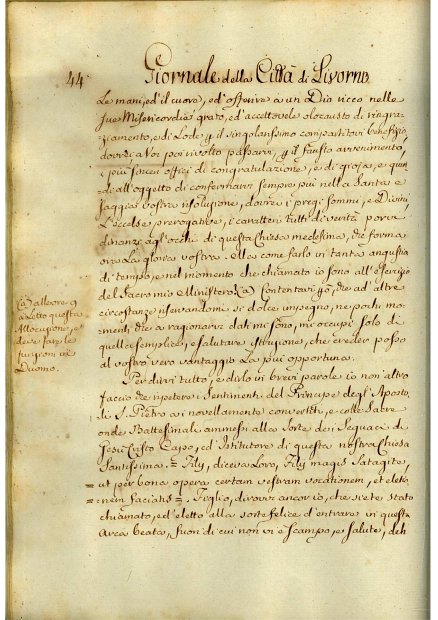 44
Giornale della Città di Livorno
Le mani, ed' il cuore, ed' offerire a un Dio ricco nelle
sue Misericordie grato, ed' accettevole olocausto di ringra:
ziamento, e di Lode p il singolarissimo compartitovi benefizio,
dovrei a Voi poi rivolto passarvi, p il fausto avvenimento,
i più sinceri offici di congratulazione, e di gioja, e quin:
di all' oggetto di confermarvi sempre più nella Santa e
saggia vostra risoluzione, dovrei i pregi sommi, e Divini
L'eccelse prerogative, i caratteri tutti di verità porvi
dinanzi agl' occhi di questa Chiesa medesima, che forma
ora La gloria vostra. Ma come farlo in tanta angustia
di tempo, e nel momento che chiamato io sono all' Esercizio
del Sacro mio Ministero? (a) Contentatevi p ciò, che ad altre
circostanze riservandomi sì dolce impegno, ne pochi mo:
menti, che a ragionarvi dati mi sono, mi occupi solo di
quella semplice, e salutare istruzione, che creder posso
al vostro vero vantaggio La più opportuna.
Per dirvi tutto, e dirlo in brevi parole io non altro
faccio che ripetere i Sentimenti del Principe degl' Aposto:
li S. Pietro ai novellamente convertiti, e colle Sacre
onde Battesimali ammessi alla Sorte dei Seguaci di
Gesù Cristo Capo, ed' Istitutore di questa nostra Chiesa
Santissima. = Filij, diceva Loro, Filij magis Satagite,
= ut per bona opera certam vestram vocationem, et electio
= nem faciatis =. Figlio, dirovvi ancor io, che siete stato
chiamato, ed' eletto alla sorte felice d'entrare in questa
Arca beata, fuori di cui non vi è scampo, e salute, deh
questa
Allocuzione, et
deve fare le
funzioni in
Duomo.